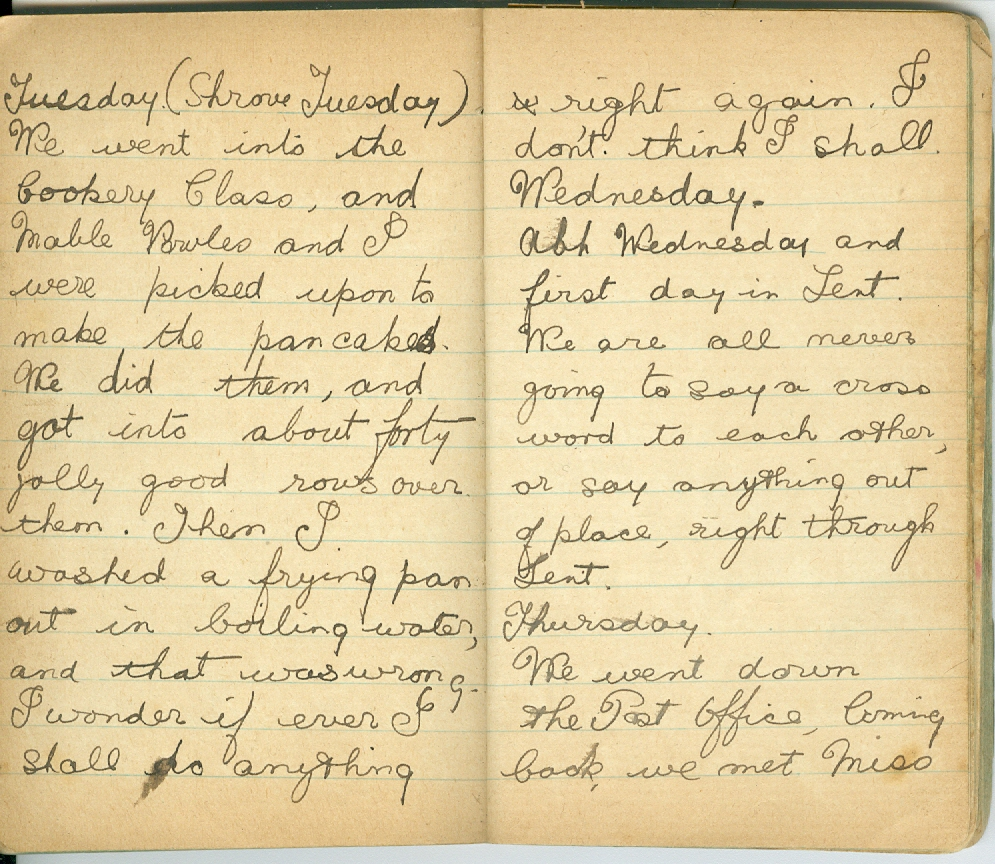 Tuesday. (Shrove Tuesday).
We went into the
Cookery Class, and
Mable Bowles and I
were picked upon to
make the pancakes.
We did them, and
got into about forty
jolly good rows over
them. Then I
washed a frying pan
out in boiling water,
and that was wrong.
I wonder if ever I
shall do anything
right again. I
don't. think I shall.
Wednesday.
Ash Wednesday and
first day in Lent.
We are all never
going to say a cross
word to each other,
or say anything out
of place, right through
Lent.
Thursday.
We went down
the Post Office, Coming
back, we met Miss